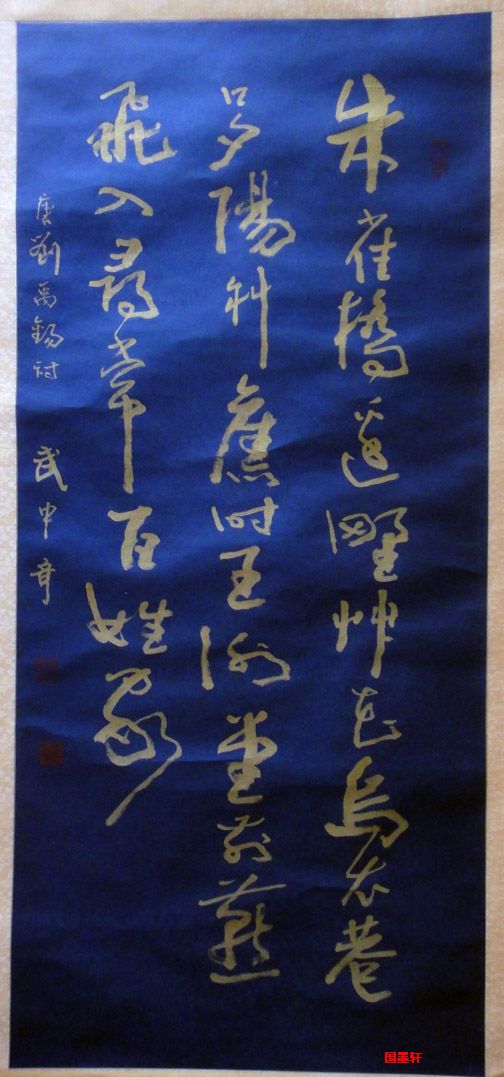 朱雀橋邊野艸花烏衣巷
口夕陽斜舊時王謝堂前燕
飛入尋常百姓家
唐劉禹錫詩 武中奇
国墨轩